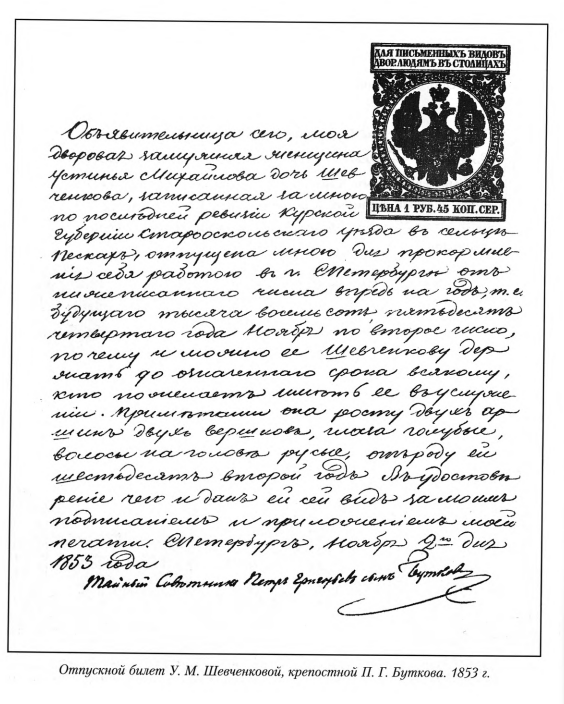 ДЛЯ ПИСЬМЕННЫХЪ ВИДОВЪ
ДВОР. ЛЮДЯМЪ ВЪ СТОЛИЦАХЪ
ЦѢНА 1 РУБ. 45 КОП. СЕР.
Объявительница сего, моя
дворовая замужняя женщина
Устинья Михайлова дочь Шев-
ченкова, записанная за мною
по последней ревизіи Курской
Губерніи Старооскольскаго уѣзда въ сельцѣ
Пескахъ, отпущена мною для прокормле-
нія себя работою въ г. СПетербургѣ отъ
нижеписаннаго числа впредь на годъ, т. е.
будущаго тысяча восемьсотъ пятьдесятъ
четвертаго года Ноября по второе число,
почему и можно ее Шевченкову дер-
жать до означеннаго срока всякому,
кто пожелаетъ имѣть ее въ услуже-
ніи. Примѣтами она росту двухъ ар-
шинъ двухъ вершковъ, глаза голубые,
волосы на головѣ русые, отъ роду ей
шестьдесятъ второй годъ. Въ удостовѣ-
реніе чего и данъ ей сей видъ за моимъ
подписаніемъ и приложеніемъ моей
печати. СПетербургъ, Ноября 2го дня
1853 года
Тайный Совѣтникъ Петръ Григорьевъ сынъ Бутковъ
Отпускной билет У. М. Шевченковой, крепостной П. Г. Буткова. 1853 г.